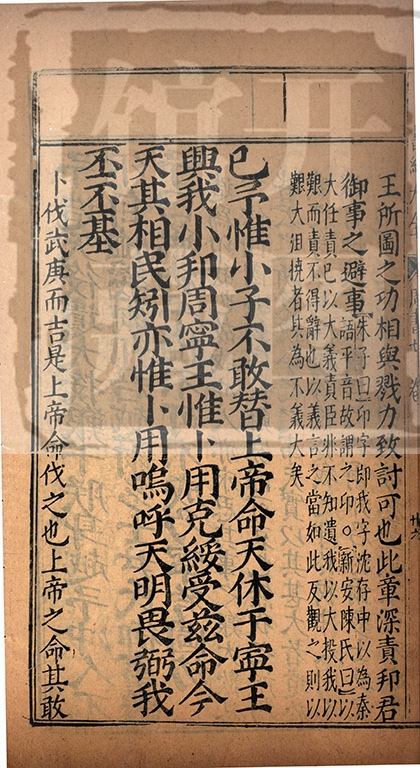 王所圖之功相與戮力致討可也此章深責邦君
御事之避事
朱子曰卬字即我字沈存中以為秦
語平音故謂之卬○新安陳氏曰以
大任責己以大義責臣非不知遺我以大投我以
艱而責不得辭也以義言之當如此反觀之則以
艱大沮撓者其為不義大矣
已予惟小子不敢替上帝命天休于寧王
興我小邦周寧王惟卜用克綏受茲命今
天其相民矧亦惟卜用嗚呼天明畏弼我
丕丕基
卜伐武庚而吉是上帝命伐之也上帝之命其敢